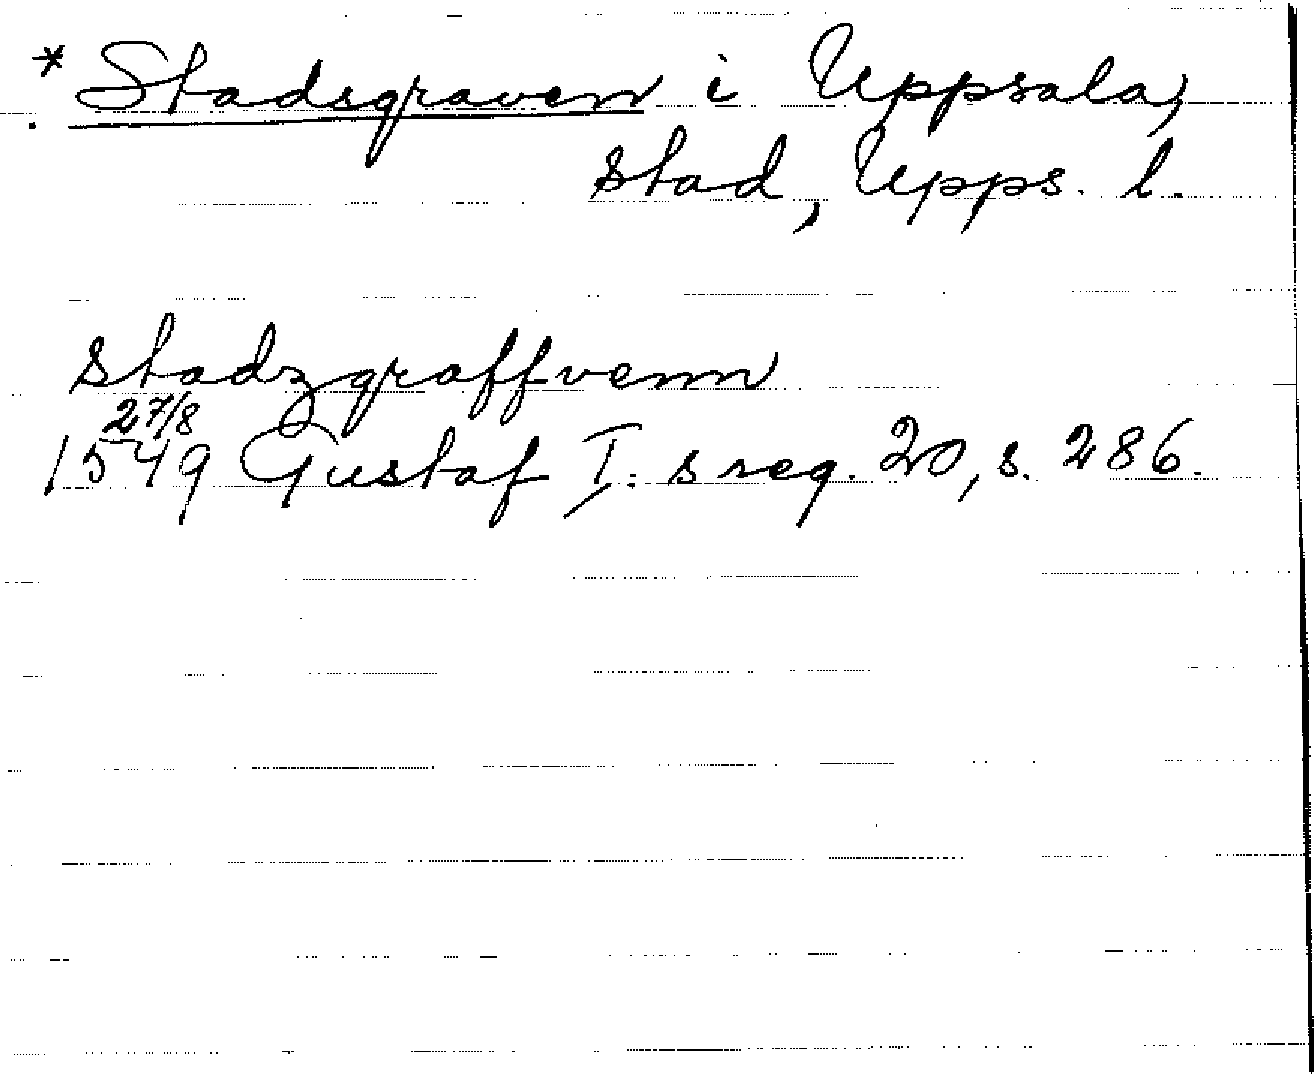 * Stadsgraven i Uppsala,
stad, Upps. l.
stadzgraffvenn
27/8
1549 Gustaf I:s reg. 20, s. 286.